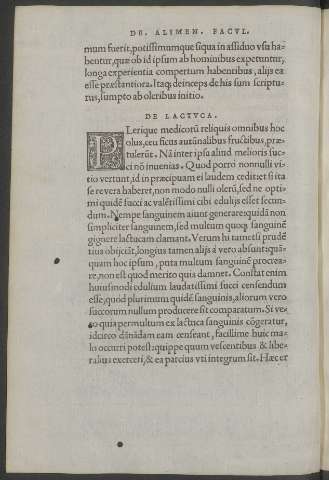 DE. ALIMEN. FACVL.
mum fuerit, potissimumque siqua in assiduo vsu ha-
bentur, quæ ob id ipsum ab hominibus expetuntur,
longa experientia compertum habentibus, alijs ea
esse præstantiora. Itaq; deinceps de his sum scriptu-
rus, sumpto ab oleribus initio.
DE LACTVCA.
PLerique medicorũ reliquis omnibus hoc
olus, ceu ficus autũnalibus fructibus, præ-
tulerũt. Nã inter ipsa aliud melioris suc-
ci nõ inuenias. Quod porrò nonnulli vi-
tio vertunt, id in præcipuam ei laudem cedit: et si ita
se reuera haberet, non modo nulli olerũ, sed ne opti-
mi quidẽ succi ac valẽtissimi cibi edulijs esset secun-
dum. Nempe sanguinem aiunt generare: quidã non
simpliciter sanguinem, sed multum quoq; sanguinẽ
gignere lactucam clamant. Verum hi tametsi prudẽ
tius obijcãt, longius tamen alijs à vero absunt: quã-
quam hoc ipsum, puta multum sanguinẽ procrea-
re, non est quod meritò quis damnet. Constat enim
huiusmodi edulium laudatissimi succi censendum
esse, quod plurimum quidẽ sanguinis, aliorum vero
succorum nullum producere sit comparatum. Si ve-
ro quia permultum ex lactuca sanguinis cõgeratur,
idcirco dãnãdam eam censeant, facillime huic ma-
lo occurri potest: quippe quum vescentibus & libe-
ralius exerceri, & ea parcius vti integrum sit. Hæc er